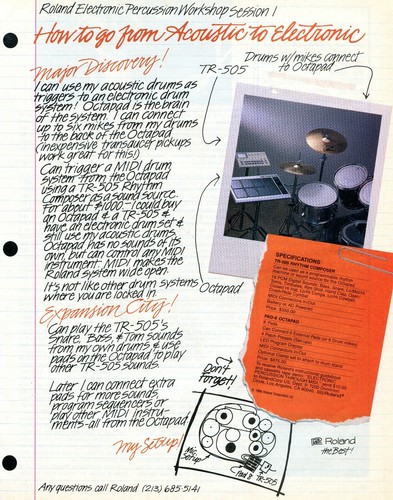 Roland Electronic Percussion Workshop Session 1
How to go from Acoustic to Electronic
Major Discovery!
I can use my acoustic drums as
triggers to an electronic drum
system! Octapad is the brain
of the system. I can connect
up to six mikes from my drums
to the back of the Octapad
(inexpensive transducer pickups
work great for this!)
Can trigger a MIDI drum
system from the Octapad
using a TR-505 Rhythm
Composer as a sound source.
For about $1000- I could buy
an Octapad & a TR-505 &
have an electronic drum set &
still use my acoustic drums.
Octapad has no sounds of its
own, but can control any MIDI
instrument. MIDI makes the
Roland system wide open.
It's not like other drum systems
where you are locked in.
Expansion City!
Can play the TR-505's
Snare, Bass, & Tom sounds
from my own drums & use
pads on the Octapad to play
other TR-505 sounds.
Later I can connect extra
pads for more sounds,
program sequencers or
play other MIDI instru-
ments-all from the Octapad.
My Setup!
Drums w/mikes connect
to Octapad
TR-505
Octapad
SPECIFICATIONS
TR-505 RHYTHM COMPOSER
MIDI Connectors In/Out
Battery or AC Powered
PAD-8 OCTAPAD
8 Pads
LED Program Display
MIDI Connectors In/Out
Don't
forget!
Mic
Setup
Pad 8
TR-505
Roland
the Best!
Any questions call Roland (213) 685-5141